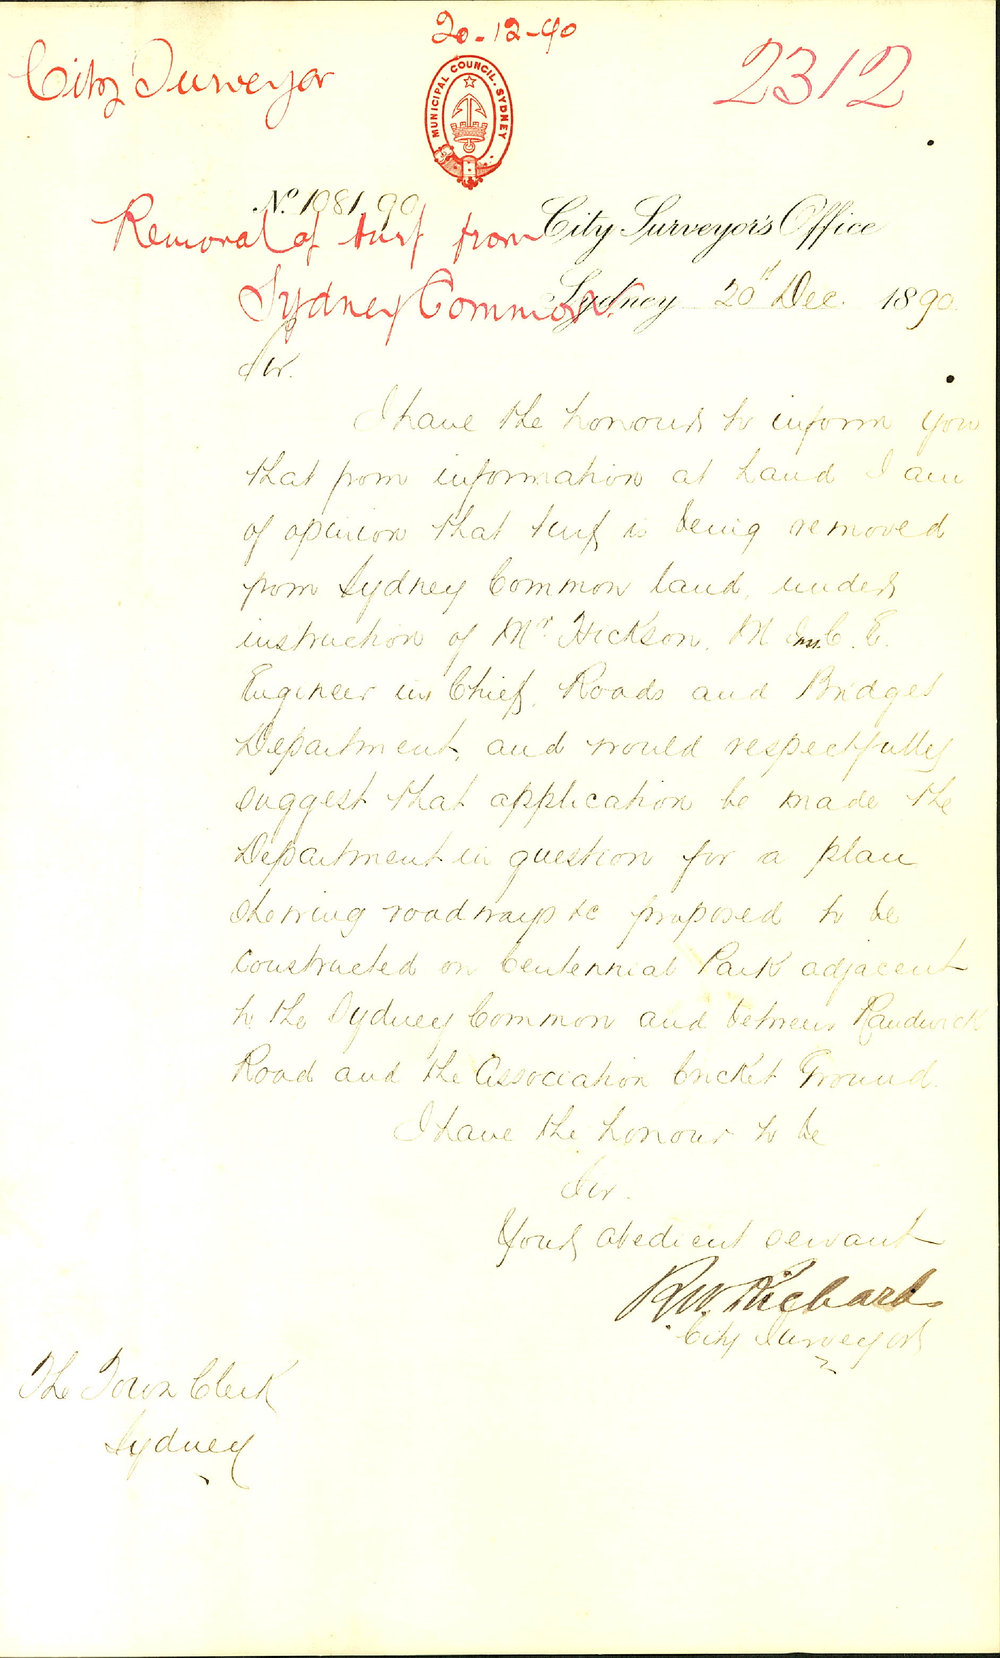 20-12-90
City Surveyor
2312
MUNICIPAL COUNCIL. SYDNEY
No. 1081.90
Removal of turf from
City Surveyor's Office
Sydney Common
Sydney 20th Dec. 1890
Sir.
I have the honour to inform you
that from information at hand I am
of opinion that turf is being removed
from Sydney Common land, under
instruction of Mr. Hickson, M. Inst. C. E.
Engineer in Chief, Roads and Bridges
Department, and would respectfully
suggest that application be made the
Department in question for a plan
shewing roadways &c proposed to be
constructed on Centennial Park adjacent
to the Sydney Common and between Randwick
Road and the Association Cricket Ground.
I have the honour to be
Sir.
Your obedient servant
R.W. Richards
City Surveyor
The Town Clerk
Sydney